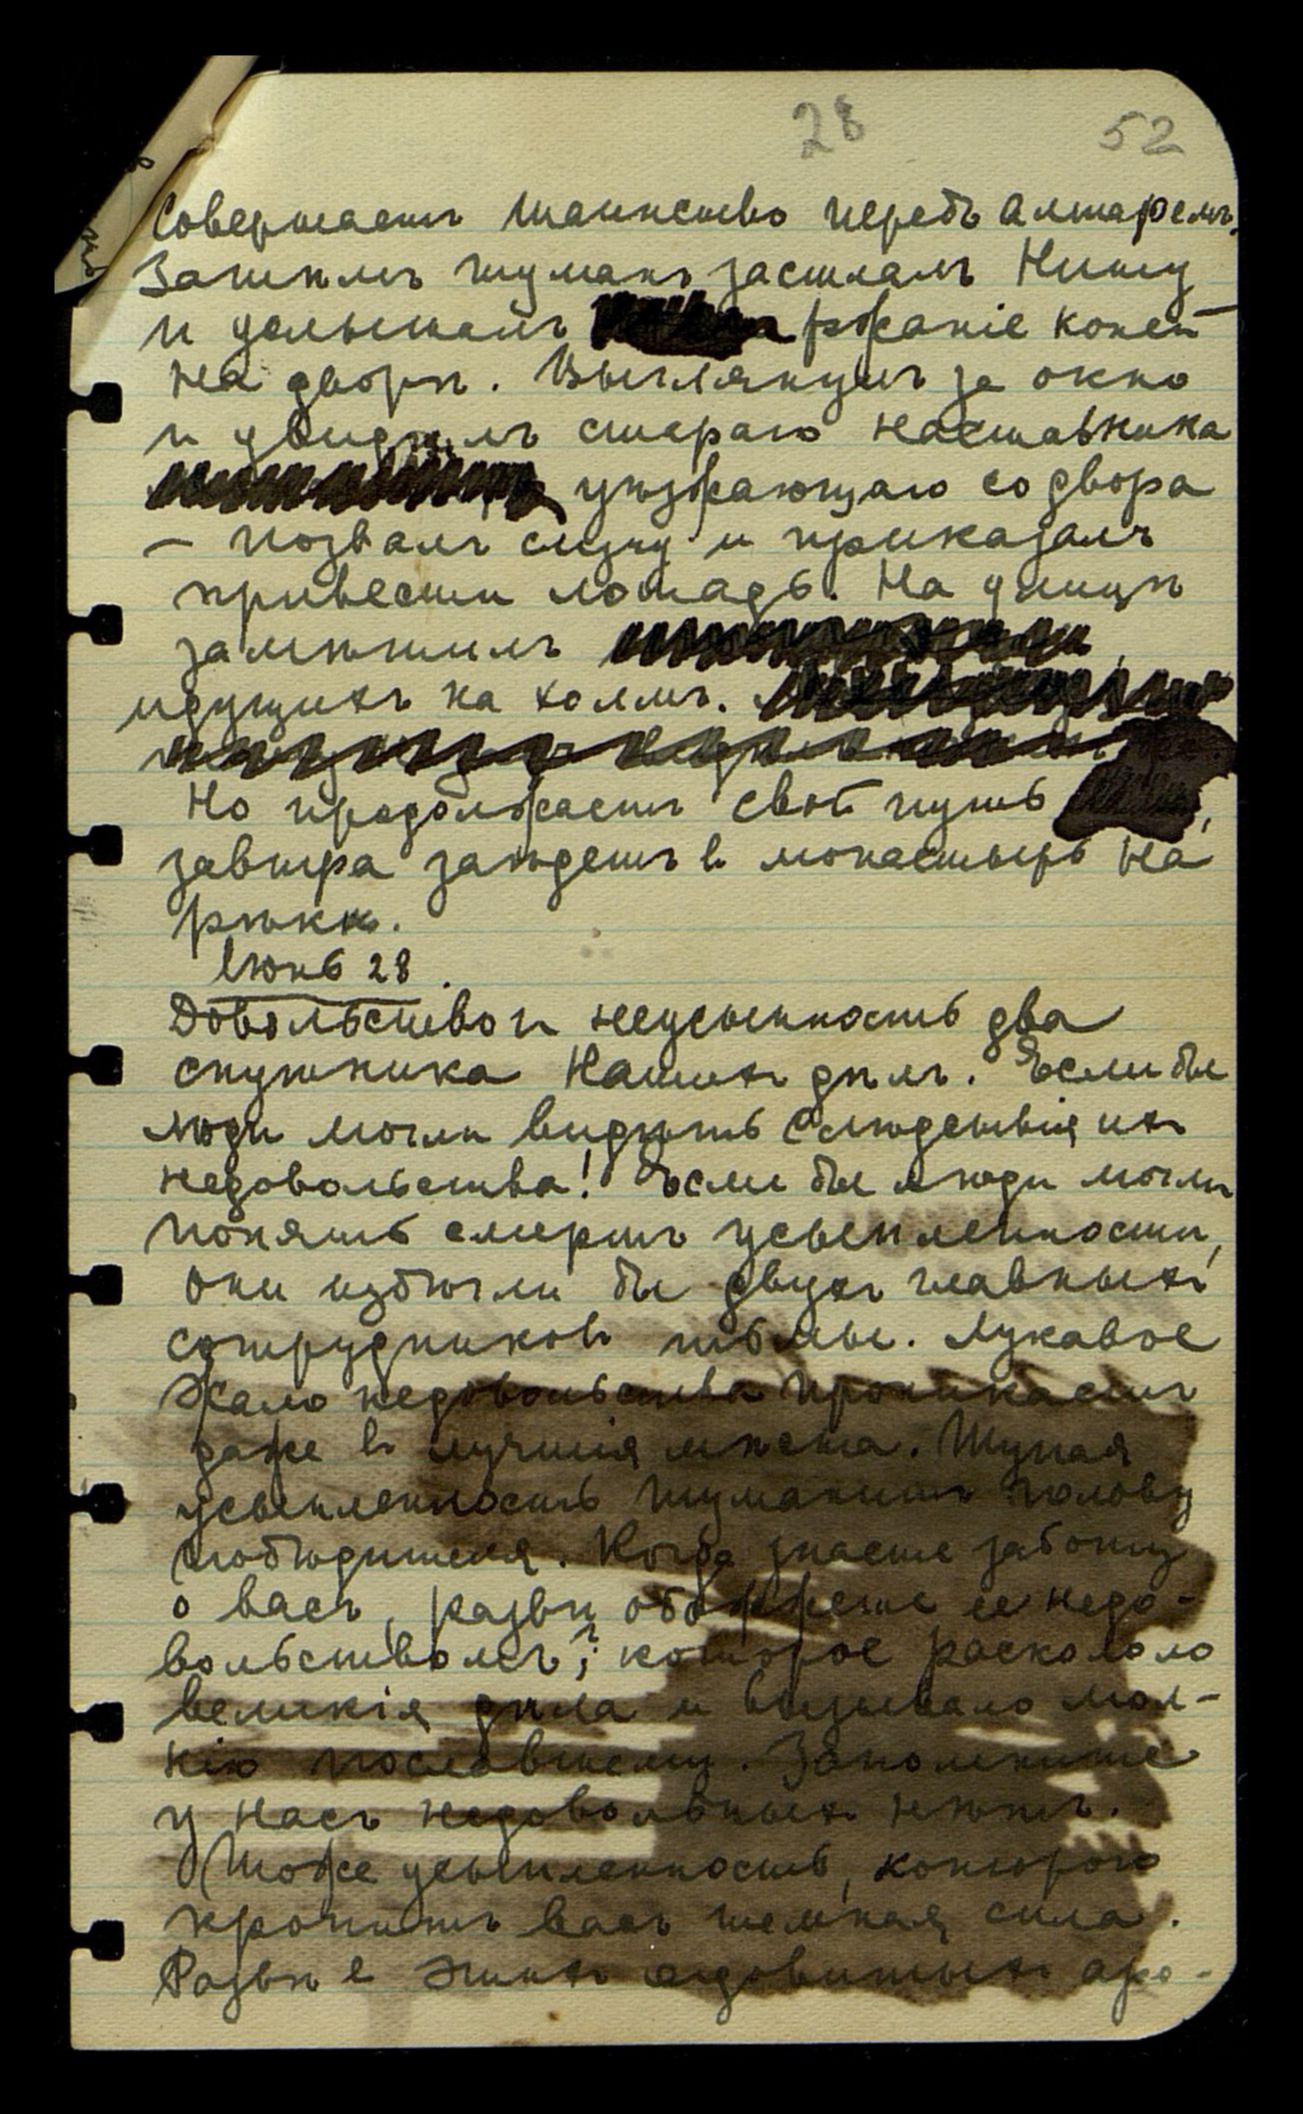 28 52
Совершаетъ таинство передъ алтаремъ.
Затѣмъ туманъ застлалъ Нишу
и услышалъ ржаніе коней
на дворѣ. Выглянулъ за окно
и увидѣлъ стараго наставника
уѣзжающаго со двора
— позвалъ слугу и приказалъ
привести лошадь. На улицѣ
замѣтилъ
идущихъ на холмъ.
Но продолжаетъ свой путь
завтра заѣдетъ въ монастырь на
рѣкѣ.
Іюнь 28.
Довольство и неусыпность два
спутника Нашихъ дѣлъ. Если бы
люди могли видѣть слѣдствія ихъ
недовольства! Если бы люди могли
понять смерть усыпленности,
они избѣгли бы двухъ главныхъ
сотрудниковъ тьмы. Лукавое
жало недовольства проникаетъ
даже въ лучшія мѣста. Тупая
усыпленность туманитъ голову
побѣдителя. Когда знаете заботу
о васъ, развѣ обожжете ее недо-
вольствомъ?; которое раскололо
великія дѣла и вызывало мол-
нію пославшему. Запомните
у насъ недовольныхъ нѣтъ.
Тоже усыпленность, которою
кропитъ васъ темная сила.
Развѣ въ этихъ ядовитыхъ аро-